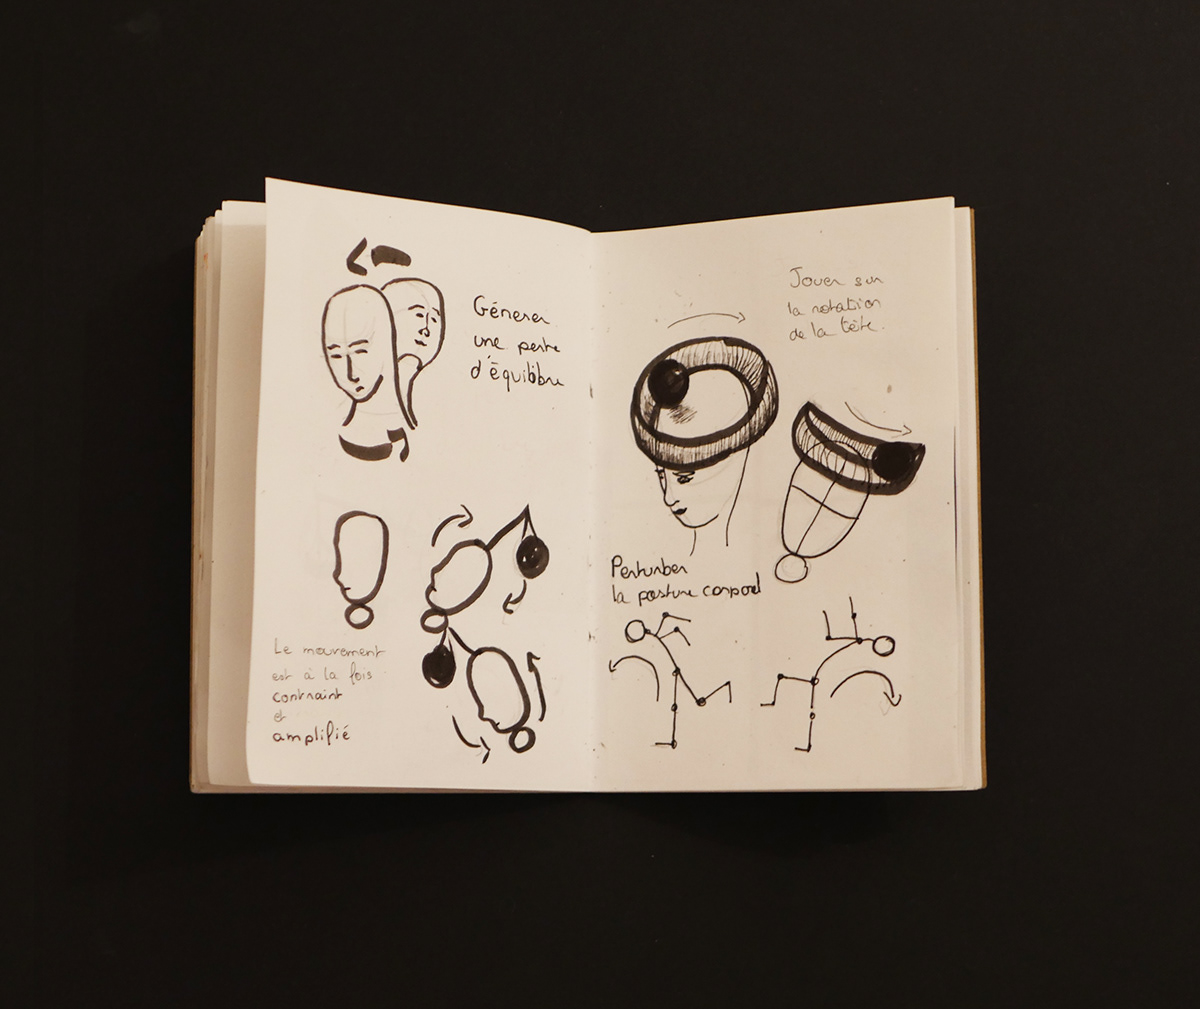 Génerer
une perte
d'équilibre
Le mouvement
est à la fois
contraint
et
amplifié
Jouer sur
la rotation
de la tête.
Perturber
la posture corporel